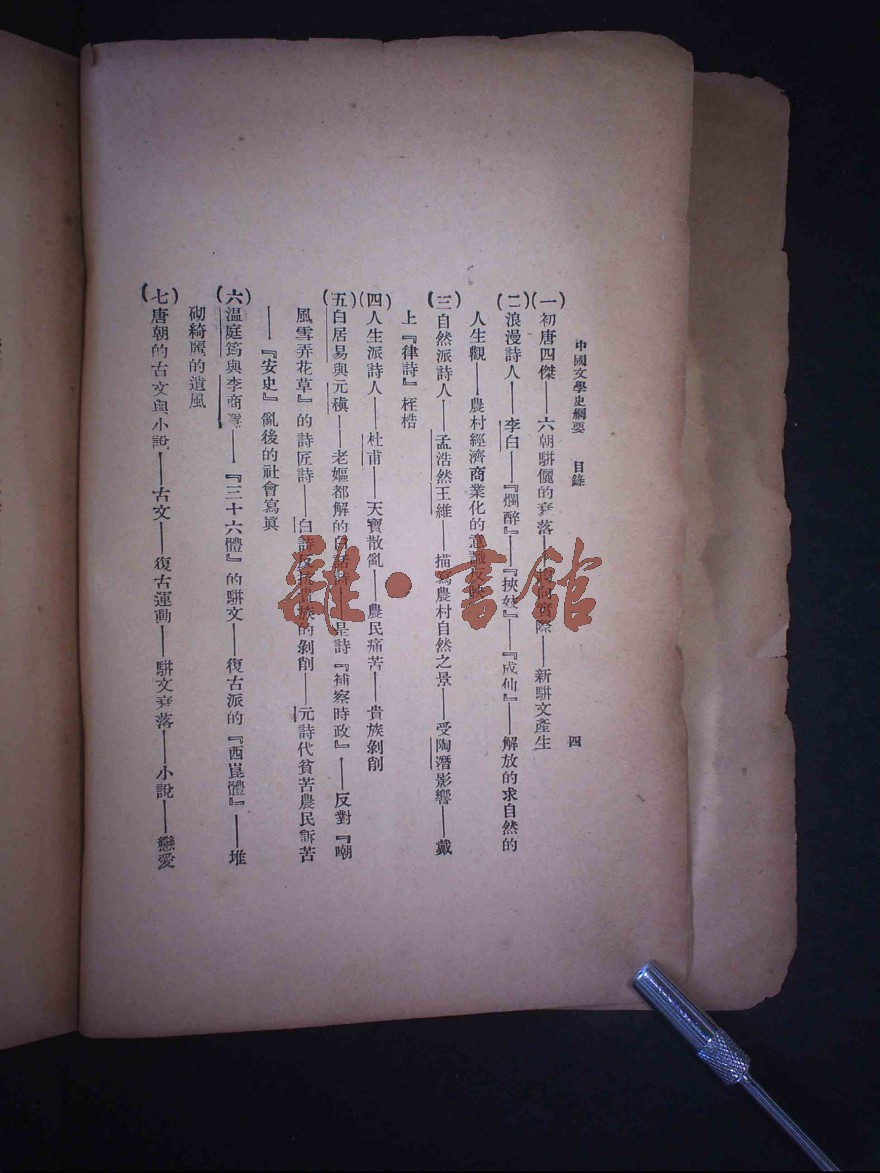 中國文學史綱要　目錄　四
(一)初唐四傑——六朝駢儷的衰落——實際——新駢文產生
(二)浪漫詩人——李白——『爛醉』——『挾妓』——『成仙』——解放的求自然的
人生觀——農村經濟商業化的意識反映
(三)自然派詩人——孟浩然王維——描寫農村自然之景——受陶潛影響——戴
上『律詩』桎梏
(四)人生派詩人——杜甫——天寶散亂——農民痛苦——貴族剝削
(五)白居易與元稹——老嫗都解的白話詩——是詩『補察時政』——反對『嘲
風雪弄花草』的詩匠詩——白詩反抗貴族的剝削——元詩代貧苦農民訴苦
——『安史』亂後的社會寫眞
(六)温庭筠與李商隱——『三十六體』的駢文——復古派的『西崑體』——堆
砌綺麗的遺風
(七)唐朝的古文與小說——古文——復古運動——駢文衰落——小說——戀愛
雜·書館